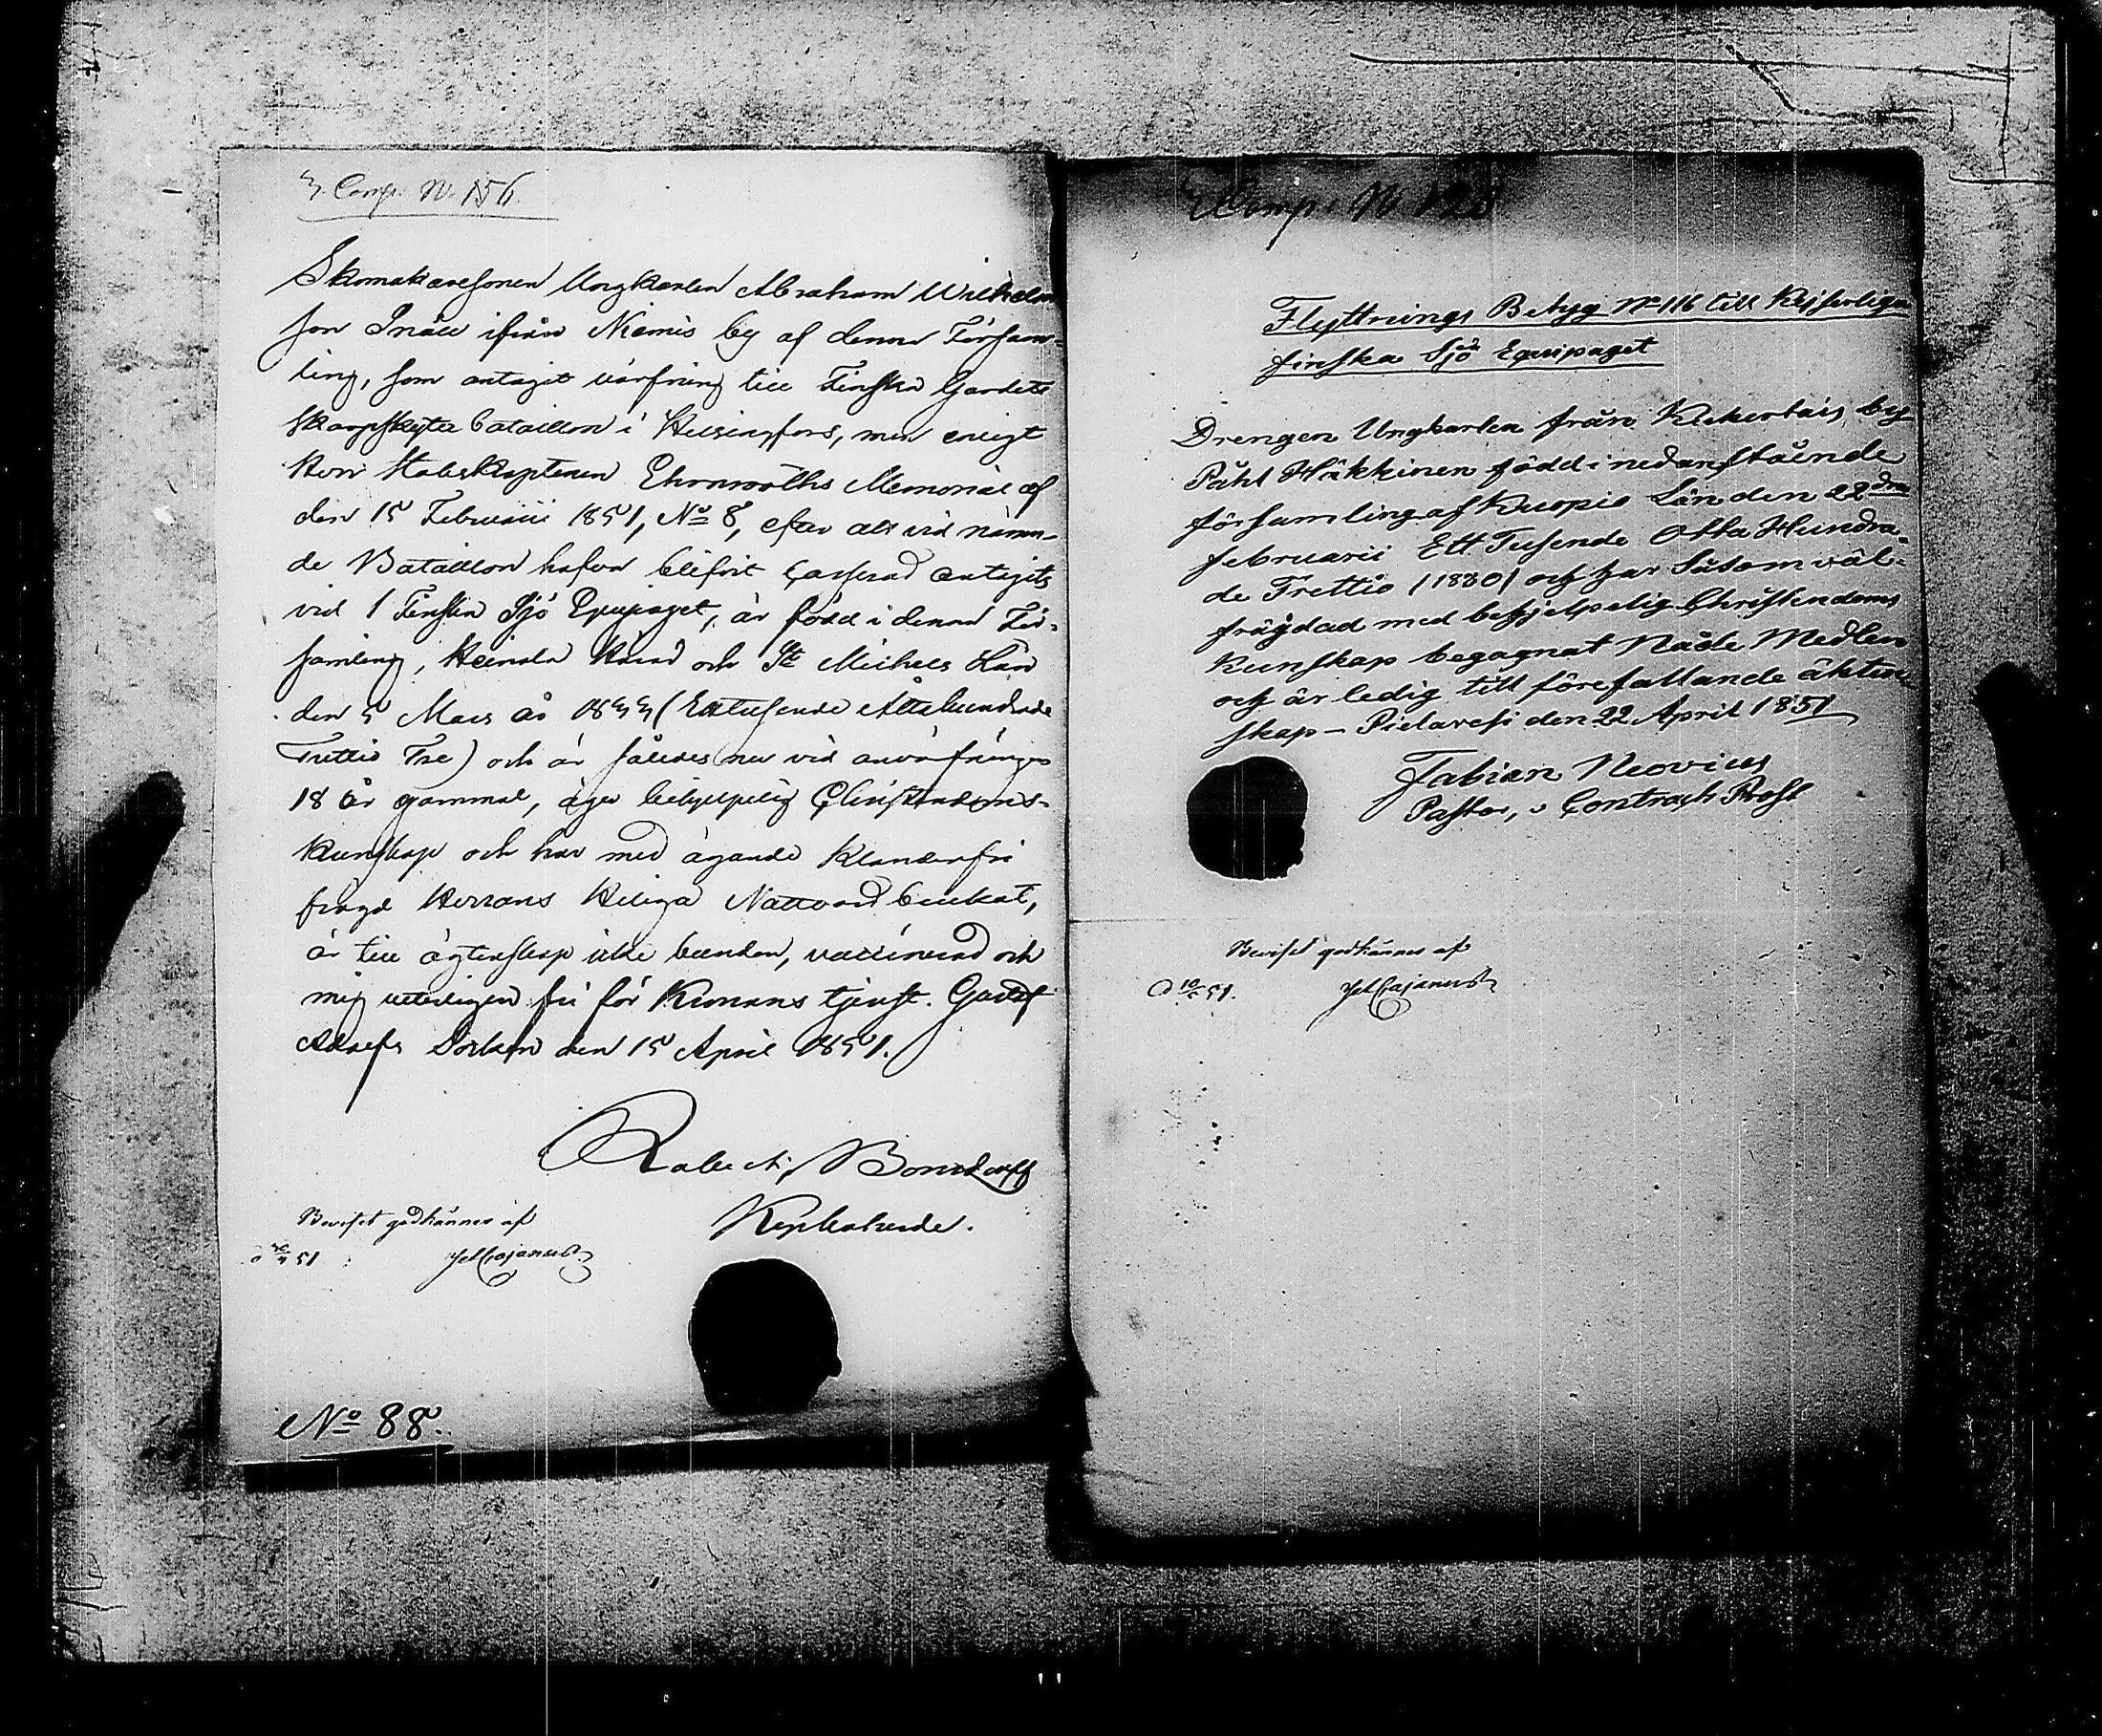 3. Comp. N. 156.
Skomakaresonen Ungkarlen Abraham Wilhelm
son Snäll ifrån Niemis by af denna Försam-
ling, som antagit värfning till Finska Gardets
Skarpskytte bataillon i Helsingfors, men enligt
Herr Stabskaptenen Ehrnrooths Memorial af
den 15 Februarii 1851, No 8, efter att vid nämn-
de Bataillon hafva blifvit casserad antagits
vid 1 Finska Sjö Equipaget, är född i denna För-
samling, Heinola Härad och St Michels Län
den 5 Mars år 1833 (Ettusende Åttahundrade
Trettio Tre) och är således nu vid anvärfningen
18 år gammal, äger behjelpelig Christendoms-
kunskap och har med ägande klanderfri
frägd Herrans Heliga Nattvard brukat,
är till ägtenskap icke bunden, vaccinerad och
mig veterligen fri för Kronans tjenst. Gustaf
Adolfs Socken den 15 April 1851.
Robert Bonsdorff
Kyrkoherde.
Beviset godkännes af
51 Cajanus
No 88.
Comp. N 128
Flyttnings Betyg No 116 till Kejserliga
finska Sjö Equipaget
Drengen Ungkarlen från by
Påhl Häkkinen född i nedanstående
församling af Kuopio Län den 22dra
februarii Ett Tusende Otta Hundra-
de Trettio (1830) och har Såsom väl-
frägdad med behjelpelig Christendoms
Kunskap begagnat Nåde Medlen
och är ledig till förefallande äkten-
skap – Pielavesi den 22 April 1851
Fabian Neovius
Pastor, o Contracts Prost
Beviset godkännes af
51. Cajanus